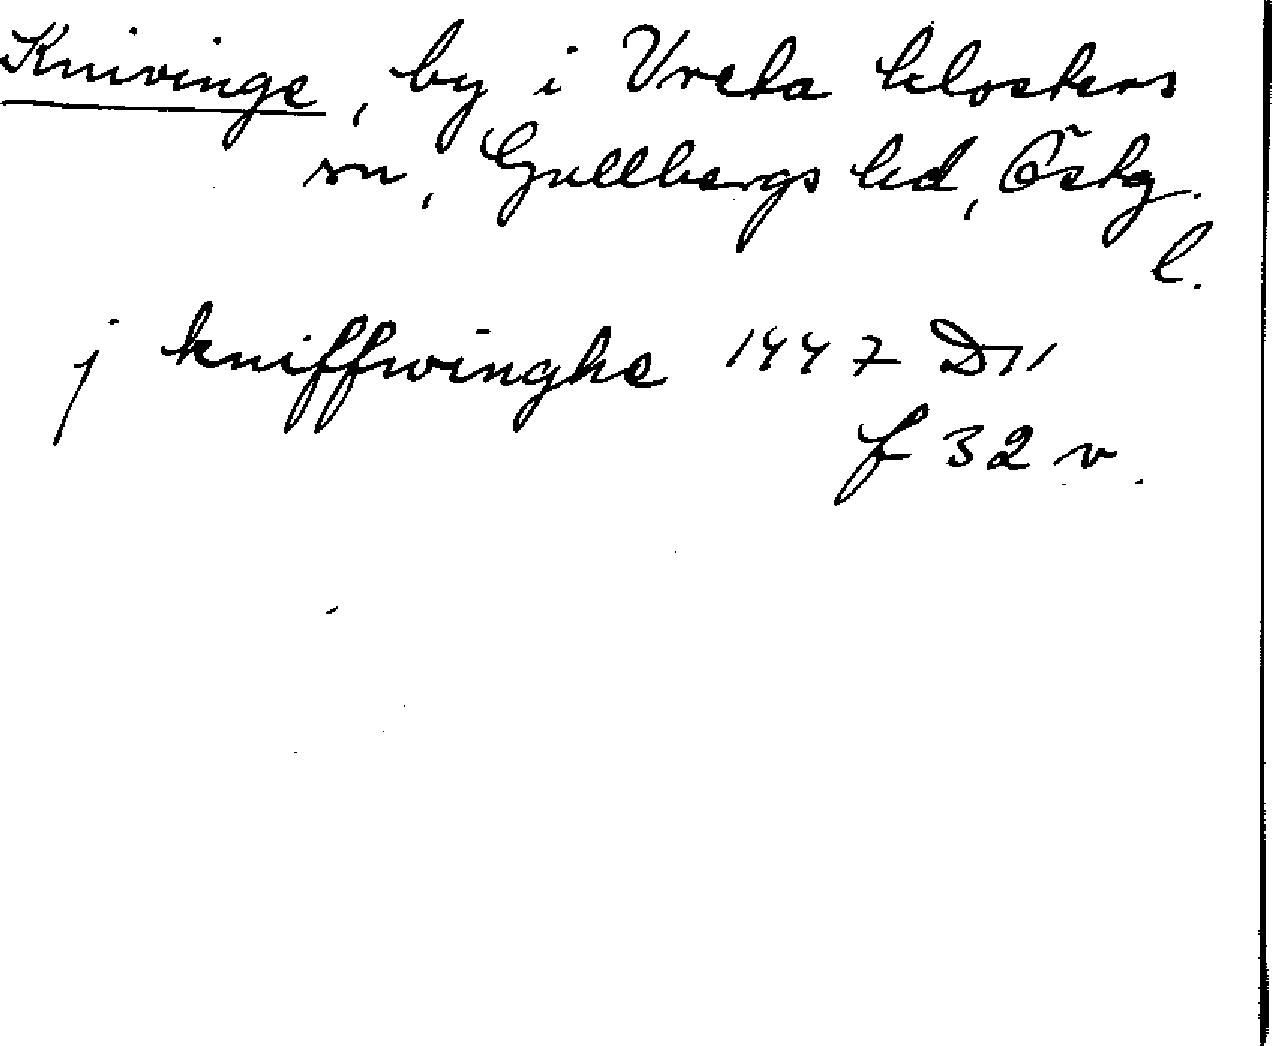 Knivinge, by i Vreta klosters
sn, Gullbergs hd, Östg.
l.
j kniffwinghe 1447 D11
f 32 v.